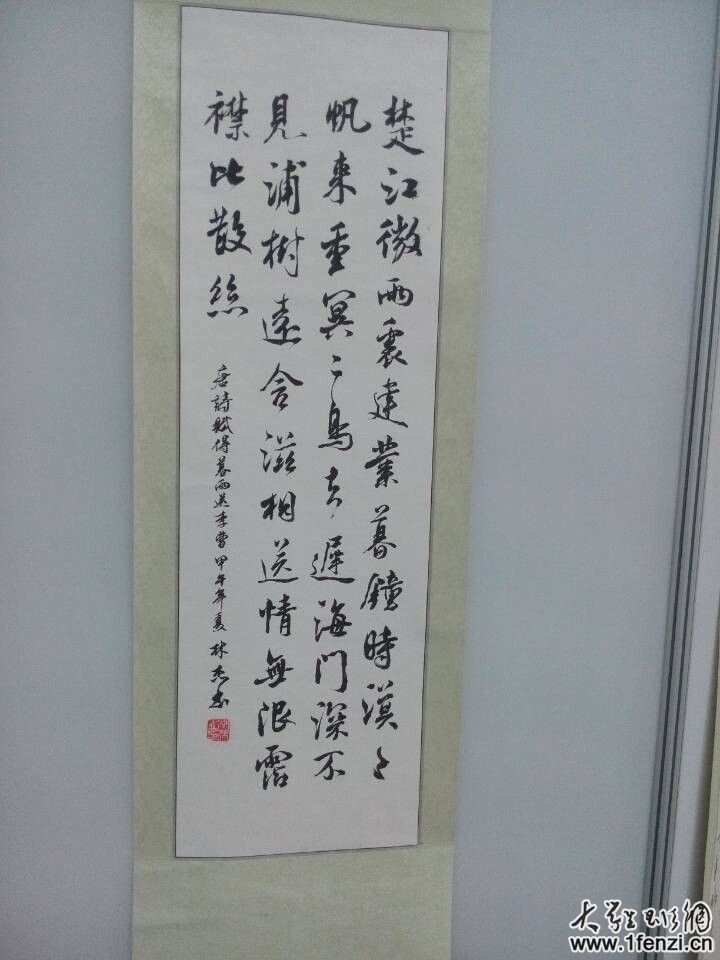 楚江微雨裏建業暮鐘時漠々
帆來重冥々鳥去遲海門深不
見浦樹遠含滋相送情無限霑
襟比散絲
唐詩賦得暮雨送李曹甲午年夏林書
大学生书法网
www.1fenzi.cn